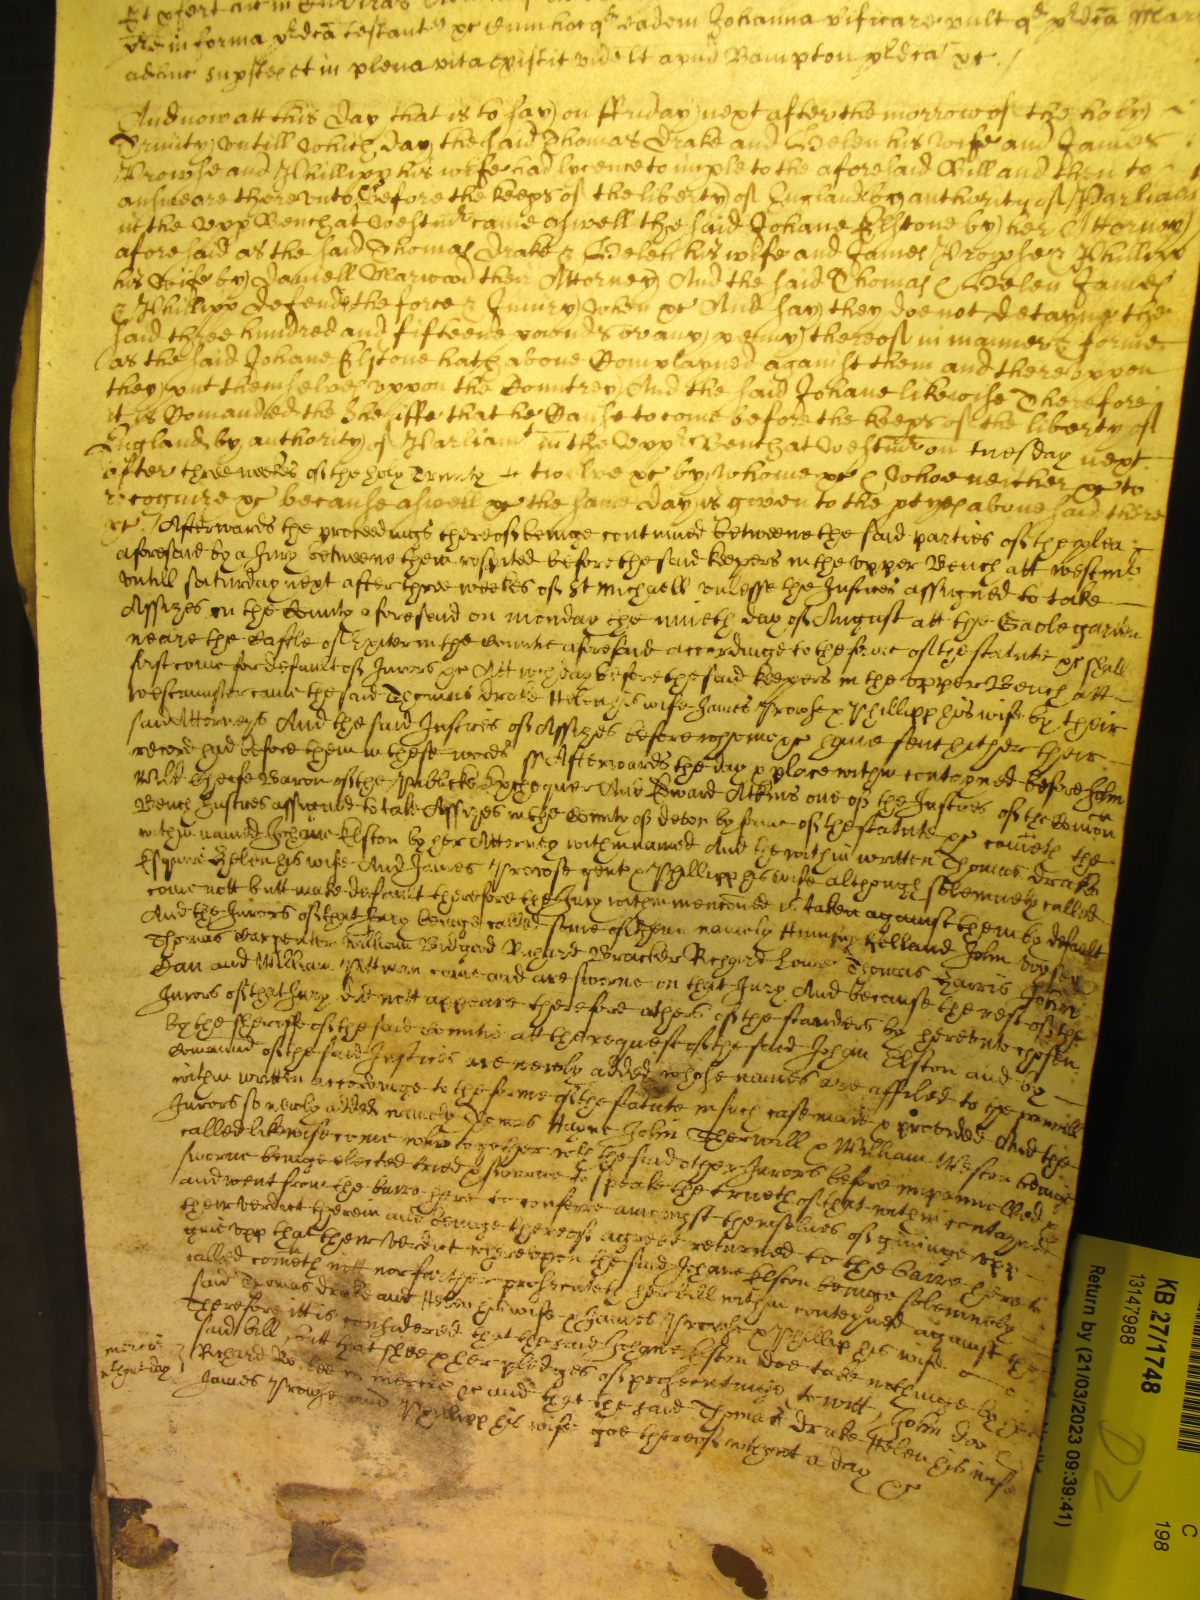 vre in forma predca testant xc Cum hoc qd eadem Johanna vificare vult qd predca
adhuc supstes et in plena vita existit videlt apud Bampton predca xc
And now att this day that is to say on ffriday next after the morrow of the holy
Trinity untill which day the said Thomas Drake and Helen his wife and James
Prowse and Phillipp his wife had lycence to imple to the aforesaid Bill and then to
answeare thereunto before the keeps of the liberty of England by authority of Parliam
in the Upp Bench at Westmr came aswell the said Johane Elstone by her Attorney
aforesaid as the said Thomas Drake & Helen his wife and James Prowse & Phillipp
his wife by Daniell Marwood their Attorney And the said Thomas Helen James
& Phillipp defende the force & Iniury when xc And say they doe not detayne the
said three hundred and fifteene pounds or any penny thereof in manner & forme
as the said Johane Elstone hath above Complayned against them and thereuppon
they put themselves uppon the Countrey And the said Johane likewise Therefore
it is Comanded the Sheriffe that he Cause to come before the keeps of the liberty of
England by authority of Parliamt in the Uppr Bench at Westmr on tuesday next
after three weekes of the holy Trinity twelve xc by whome xc whoe neither xc to
recognize xc because aswell xc the same day is given to the ptyes abovesaid there
xc / Afterwards the proceedings thereof beinge continued betweene the said parties of the plea
aforesaid by a Jury betweene them respited before the said keepers in the upper Bench att westmr
untill saturday next after three weekes of St Michaell unlesse the Justices assigned to take
Assizes in the County aforesaid on monday the nineth day of August att the Gaole garden
neare the Castle of Exiter in the Countie aforesaid accordinge to the forme of the statute xc shall
first come for default of Jurors xc Att wch day before the said keepers in the upper Bench att
westminster came the said Thomas Drake Helen his wife James Prowse & Phillipp his wife by their
said Attorneys And the said Justices of Assizes before whome xc have sent hither their
record had before them in these words ss Afterwards the day & place within contayned before John
Wild Cheife Baron of the Publicke Exchequer And Edward Atkins one of the Justices of the Comon
Bench Justices assigned to take Assizes in the County of Devon by forme of the statute xc cometh the
within named Johane Elston by her Attorney within named And the within written Thomas Drake
Esquire Helen his wife And James Prowse gent & Phillipp his wife although solemnely called
come nott butt make default therefore the Jury within mencioned is taken against them by default
And the Jurors of that Jury beinge called some of them namely Humfry Kelland John
Thomas Carpenter William Bidgood Richard Bracher Richard Lowe Thomas Harris John
Can and William Pittman come and are sworne on that Jury And because the rest of the
Jurors of that Jury did nott appeare therefore others of the standers by hereunto chosen
by the sheriffe of the said Countie att the request of the said Johan Elston and by
Comaund of the said Justices are newly added whose names are affiled to the pannell
within written accordinge to the forme of the statute in such case made & provided And the
Jurors so newly added namely James Hayne John Therwill & William Weston beinge
called likewise come who together with the said other Jurors before impannelled &
sworne beinge elected tried & sworne to speake the trueth of that within contayned
and went from the barre here to conferre amongst themselves of givinge upp
their verdict therein and beinge thereof agreed returned to the barre here to
give upp that their verdict whereupon the said Johane Elston beinge solemnely
called cometh nott nor further prosecuteth her bill within conteyned against the
said Thomas Drake and Helen his wife & James Prowse & Phillip his wife
Therefore itt is considered that the said Johane Elston doe take nothinge by her
said bill butt that shee & her pledges of prosecutinge to witt John Doe &
mercie
Richard Roe bee in mercie xc and that the said Thomas Drake Helen his wife
without day
James Prowse and Phillipp his wife goe thereof without a day xc
KB 27/1748
13147988
Return by (21/03/2023 09:39:41)
C
198
D2